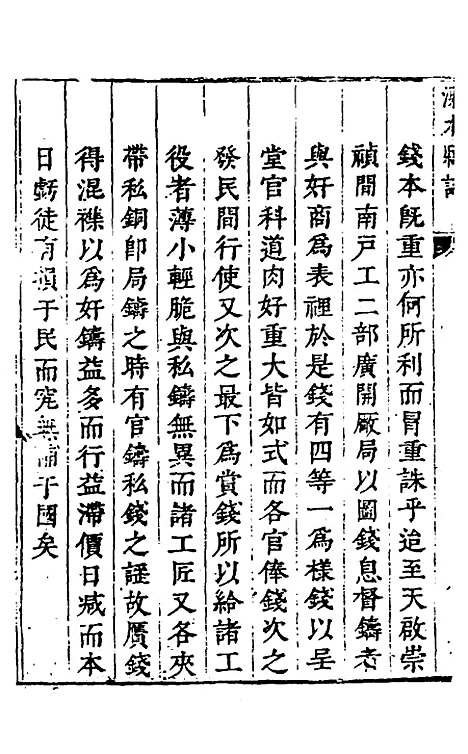 錢本旣重亦何所利而冒重誅乎迨至天啟崇
禎間南戸工二部廣開厰局以圖錢息督鑄者
與奸商爲表裡於是錢有四等一爲樣錢以呈
堂官科道肉好重大皆如式而各官俸錢次之
發民間行使又次之最下爲賞錢所以給諸工
役者薄小輕脆與私鑄無異而諸工匠又各夾
帶私銅卽局鑄之時有官鑄私錢之謡故贋錢
得混襍以爲奸鑄益多而行益滯價日减而本
日虧徒有損于民而究無補于國矣